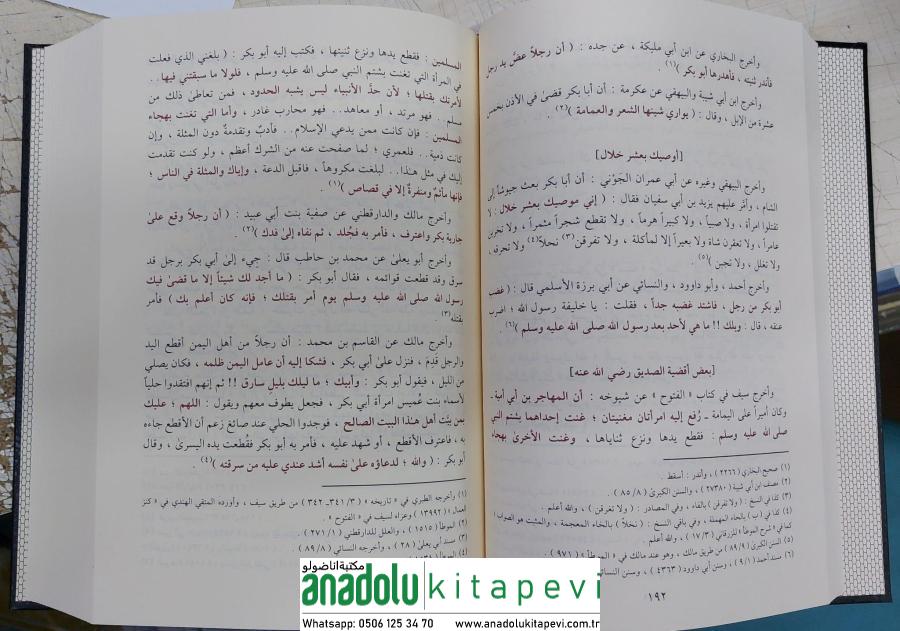 وأخرج البخاري عن ابن أبي مليكة ، عن جده : ( أن رجلاً عضَّ يد رجل
فأندر ثنيته ، فأهدرها أبو بكر )(١) .
وأخرج ابن أبي شيبة والبيهقي عن عكرمة : أن أبا بكر قضىٰ في الأذن بخمس
عشرة من الإبل ، وقال : ( يواري شينها الشعر والعمامة )(٢) .
[أوصيك بعشر خلال]
وأخرج البيهقي وغيره عن أبي عمران الجَوْني : أن أبا بكر بعث جيوشاً إلى
الشام ، وأمّر عليهم يزيد بن أبي سفيان فقال : ( إني موصيك بعشر خلال : لا
تقتلوا امرأة ، ولا صبياً ، ولا كبيراً هرماً ، ولا تقطع شجراً مثمراً ، ولا تخربن
عامراً ، ولا تعقرن شاة ولا بعيراً إلا لمأكلة ، ولا تفرقن(٣) نحلاً(٤) ولا تحرقه ،
ولا تغلل ، ولا تجبن )(٥) .
وأخرج أحمد ، وأبو داوود ، والنسائي عن أبي برزة الأسلمي قال : ( غضب
أبو بكر من رجل ، فاشتد غضبه جداً ، فقلت : يا خليفة رسول الله ؛ اضرب
عنقه ، قال : ويلك !! ما هي لأحد بعد رسول الله صلى الله عليه وسلم )(٦) .
[بعض أقضية الصديق رضي الله عنه]
وأخرج سيف في كتاب « الفتوح » عن شيوخه : أن المهاجر بن أبي أمية ـ
وكان أميراً على اليمامة ـ رُفع إليه امرأتان مغنيتان ؛ غنت إحداهما بشتم النبي
صلى الله عليه وسلم : فقطع يدها ونزع ثناياها ، وغنت الأخرىٰ بهجاء
(١) صحيح البخاري ( ٢٢٦٦ ) ، وأندر : أسقط .
(٢) مصنف ابن أبي شيبة ( ٢٧٣٨٠ ) ، والسنن الكبرىٰ ( ٨٥/٨ ) .
(٣) كذا في النسخ : ( ولا تفرقن ) بالفاء ، وفي المصادر : ( ولا تغرقن ) ، والله أعلم .
(٤) كذا في ( ب ) بالحاء المهملة ، وفي باقي النسخ : ( نخلاً ) بالخاء المعجمة ، والمثبت هو الصواب ؛
كما في « شرح الموطأ » للزرقاني ( ١٧/٣ ) ، والله أعلم .
(٥) السنن الكبرىٰ ( ٨٩/٩ ) من طريق مالك ، وهو عند مالك في « الموطأ » ( ٩٧١ ) .
(٦) مسند أحمد ( ٩/١ ) ، وسنن أبي داوود ( ٤٣٦٣ ) ، وسنن النسائي
١٩٢
المسلمين : فقطع يدها ونزع ثنيتها ، فكتب إليه أبو بكر : ( بلغني الذي فعلت
في المرأة التي تغنت بشتم النبي صلى الله عليه وسلم ، فلولا ما سبقتني فيها..
لأمرتك بقتلها ؛ لأن حدَّ الأنبياء ليس يشبه الحدود ، فمن تعاطىٰ ذلك من
مسلم.. فهو مرتد ، أو معاهد.. فهو محارب غادر ، وأما التي تغنت بهجاء
المسلمين : فإن كانت ممن يدعي الإسلام.. فأدبٌ وتقدمةٌ دون المثلة ، وإن
كانت ذمية.. فلعمري ؛ لما صفحت عنه من الشرك أعظم ، ولو كنت تقدمت
إليك في مثل هذا.. لبلغت مكروهاً ، فاقبل الدعة ، وإياك والمثلة في الناس ؛
فإنها مأثمٌ ومنفرةٌ إلا في قصاص )(١) .
وأخرج مالك والدارقطني عن صفية بنت أبي عبيد : ( أن رجلاً وقع علىٰ
جارية بكر واعترف ، فأمر به فجُلد ، ثم نفاه إلىٰ فدك )(٢) .
وأخرج أبو يعلىٰ عن محمد بن حاطب قال : جيء إلىٰ أبي بكر برجل قد
سرق وقد قطعت قوائمه ، فقال أبو بكر : ( ما أجد لك شيئاً إلا ما قضىٰ فيك
رسول الله صلى الله عليه وسلم يوم أمر بقتلك ؛ فإنه كان أعلم بك ) فأمر
بقتله(٣) .
وأخرج مالك عن القاسم بن محمد : أن رجلاً من أهل اليمن أقطع اليد
والرجل قدِم ، فنزل علىٰ أبي بكر ، فشكا إليه أن عامل اليمن ظلمه ، فكان يصلي
من الليل ، فيقول أبو بكر : وأبيك ؛ ما ليلك بليلِ سارق !! ثم إنهم افتقدوا حلياً
لأسماء بنت عُميس امرأة أبي بكر ، فجعل يطوف معهم ويقول : اللهم ؛ عليك
بمن بيَّت أهل هذا البيت الصالح ، فوجدوا الحلي عند صائغ زعم أن الأقطع جاءه
به ، فاعترف الأقطع ، أو شهد عليه ، فأمر به أبو بكر فقُطعت يده اليسرىٰ ، وقال
أبو بكر : ( والله ؛ لدعاؤه علىٰ نفسه أشد عندي عليه من سرقته )(٤) .
(١) وأخرجه الطبري في « تاريخه » ( ٣٤١/٣ـ ٣٤٢ ) من طريق سيف ، وأورده المتقي الهندي في « كنز
العمال » ( ١٣٩٩٢ ) وعزاه لسيف في « الفتوح » .
(٢) الموطأ ( ١٥١٥ ) ، والعلل للدارقطني ( ٢٧١/١ ) .
(٣) مسند أبي يعلىٰ ( ٢٨ ) ، وأخرجه النسائي ( ٨٩/٨ ) .
(٤) الموطأ
مكتبة اناضولو
anadolu kitapevi
Whatsapp: 0506 125 34 70 www.anadolukitapevi.com.tr